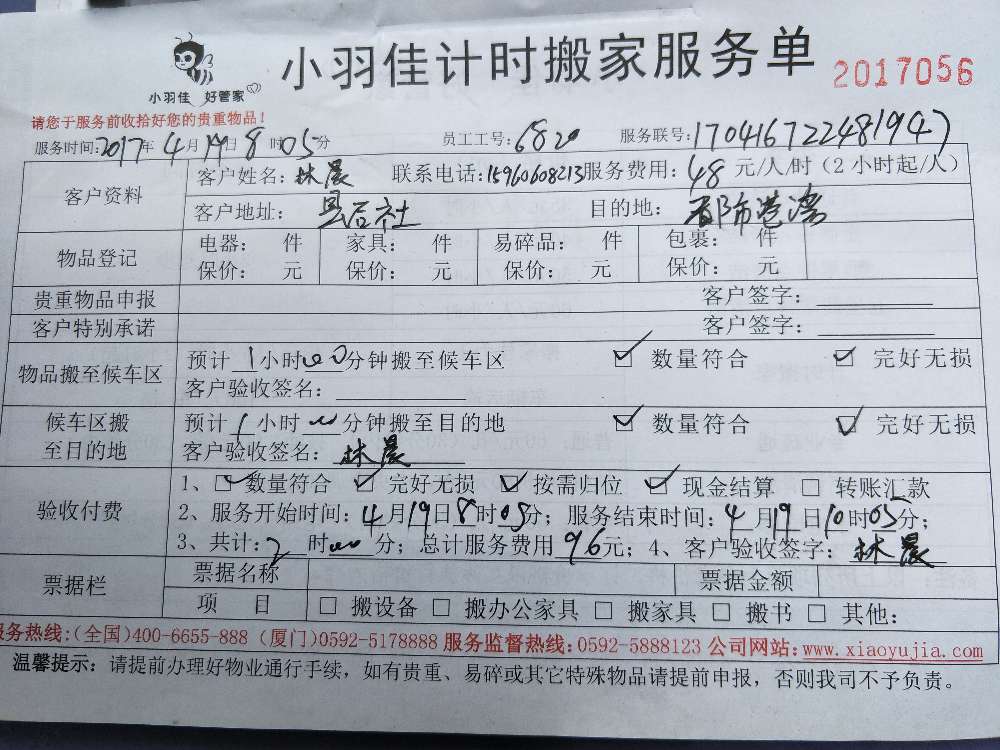 小羽佳计时搬家服务单
2017056
小羽佳 好管家
请您于服务前收拾好您的贵重物品！
服务时间:2017年4月19日8时05分 员工工号:6820 服务联号:170416722481947
客户资料 客户姓名:林晨 联系电话:15960608213 服务费用:48元/人/时（2小时起/人）
客户地址: 县后社 目的地:
物品登记 电器: 件 家具: 件 易碎品: 件 包裹: 件
保价: 元 保价: 元 保价: 元 保价: 元
贵重物品申报 客户签字:
客户特别承诺 客户签字:
物品搬至候车区 预计1小时00分钟搬至候车区 ☑ 数量符合 ☑ 完好无损
客户验收签名:
候车区搬至目的地 预计1小时00分钟搬至目的地 ☑ 数量符合 ☑ 完好无损
客户验收签名: 林晨
验收付费 1、☑ 数量符合 ☑ 完好无损 ☑ 按需归位 ☑ 现金结算 □ 转账汇款
2、服务开始时间:4月19日8时05分；服务结束时间:4月19日10时05分；
3、共计:2时00分；总计服务费用96元；4、客户验收签字:林晨
票据栏 票据名称 票据金额
项 目 □ 搬设备 □ 搬办公家具 □ 搬家具 □ 搬书 □ 其他:
服务热线:(全国)400-6655-888 (厦门)0592-5178888 服务监督热线:0592-5888123 公司网站:www.xiaoyujia.com
温馨提示: 请提前办理好物业通行手续，如有贵重、易碎或其它特殊物品请提前申报，否则我司不予负责。